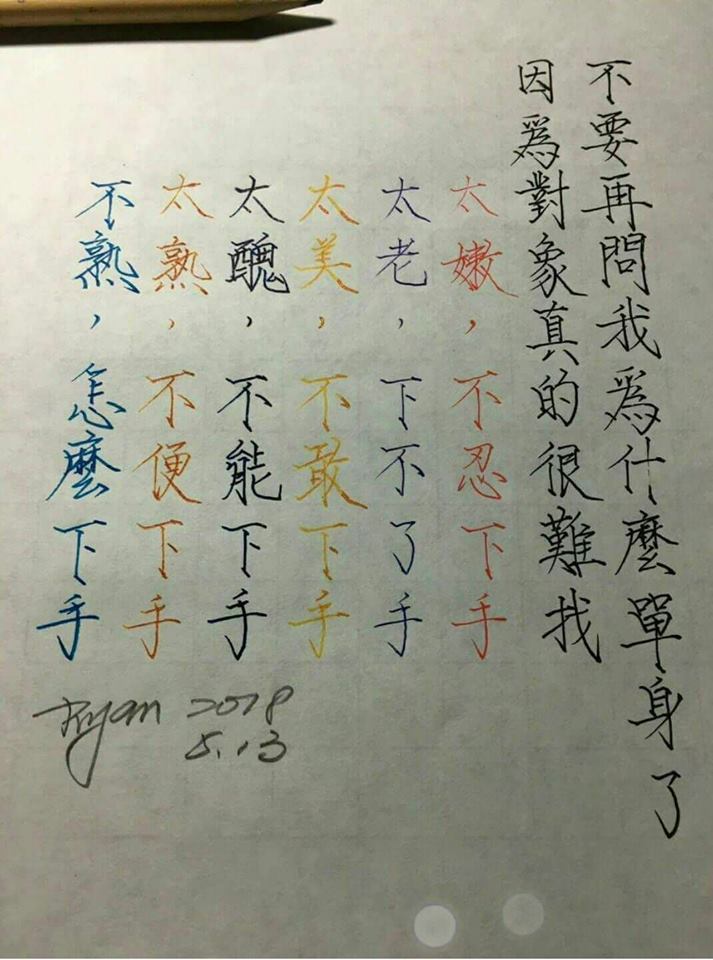 不要再問我爲什麼單身了
因爲對象真的很難找
太嫩，不忍下手
太老，下不了手
太美，不敢下手
太醜，不能下手
太熟，不便下手
不熟，怎麼下手
Ryan 2018
5.13